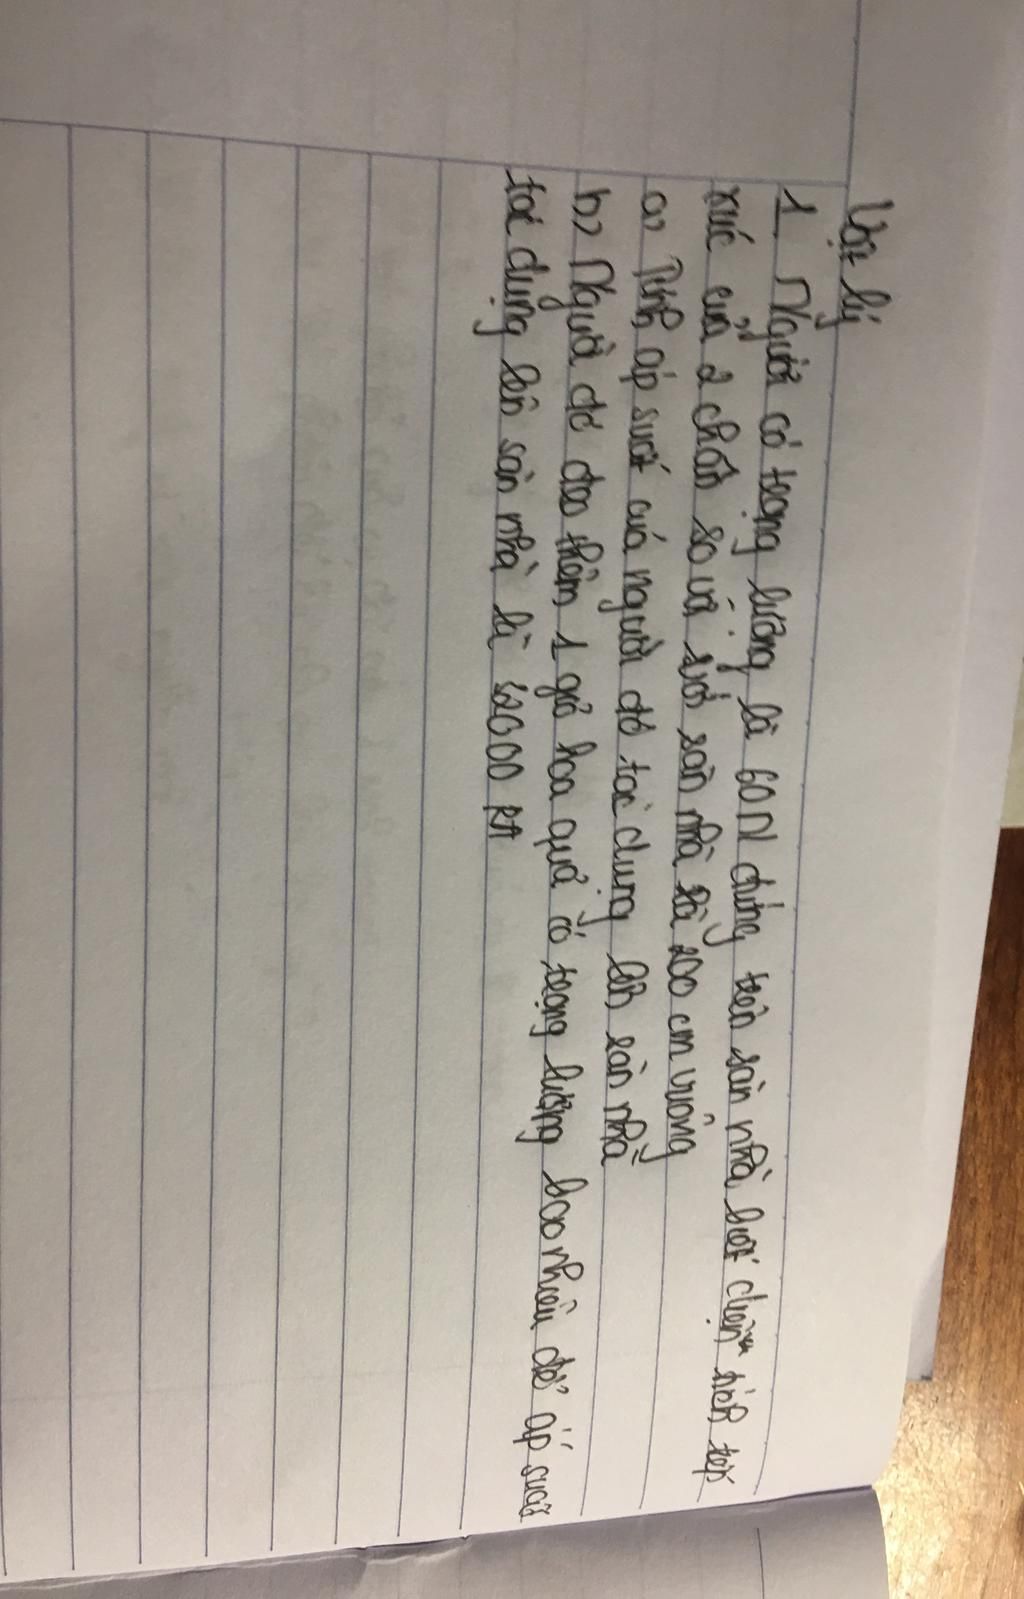 Vật lý
1. Người có trọng lượng là 60N đứng trên sàn nhà, biết diện tích tiếp
xúc của 2 chân so với với sàn nhà là 200 cm vuông
a) Tính áp suất của người đó tác dụng lên sàn nhà
b) Người đó đeo thêm 1 giỏ hoa quả có trọng lượng bao nhiêu để áp suất
tác dụng lên sàn nhà là 32000 PA